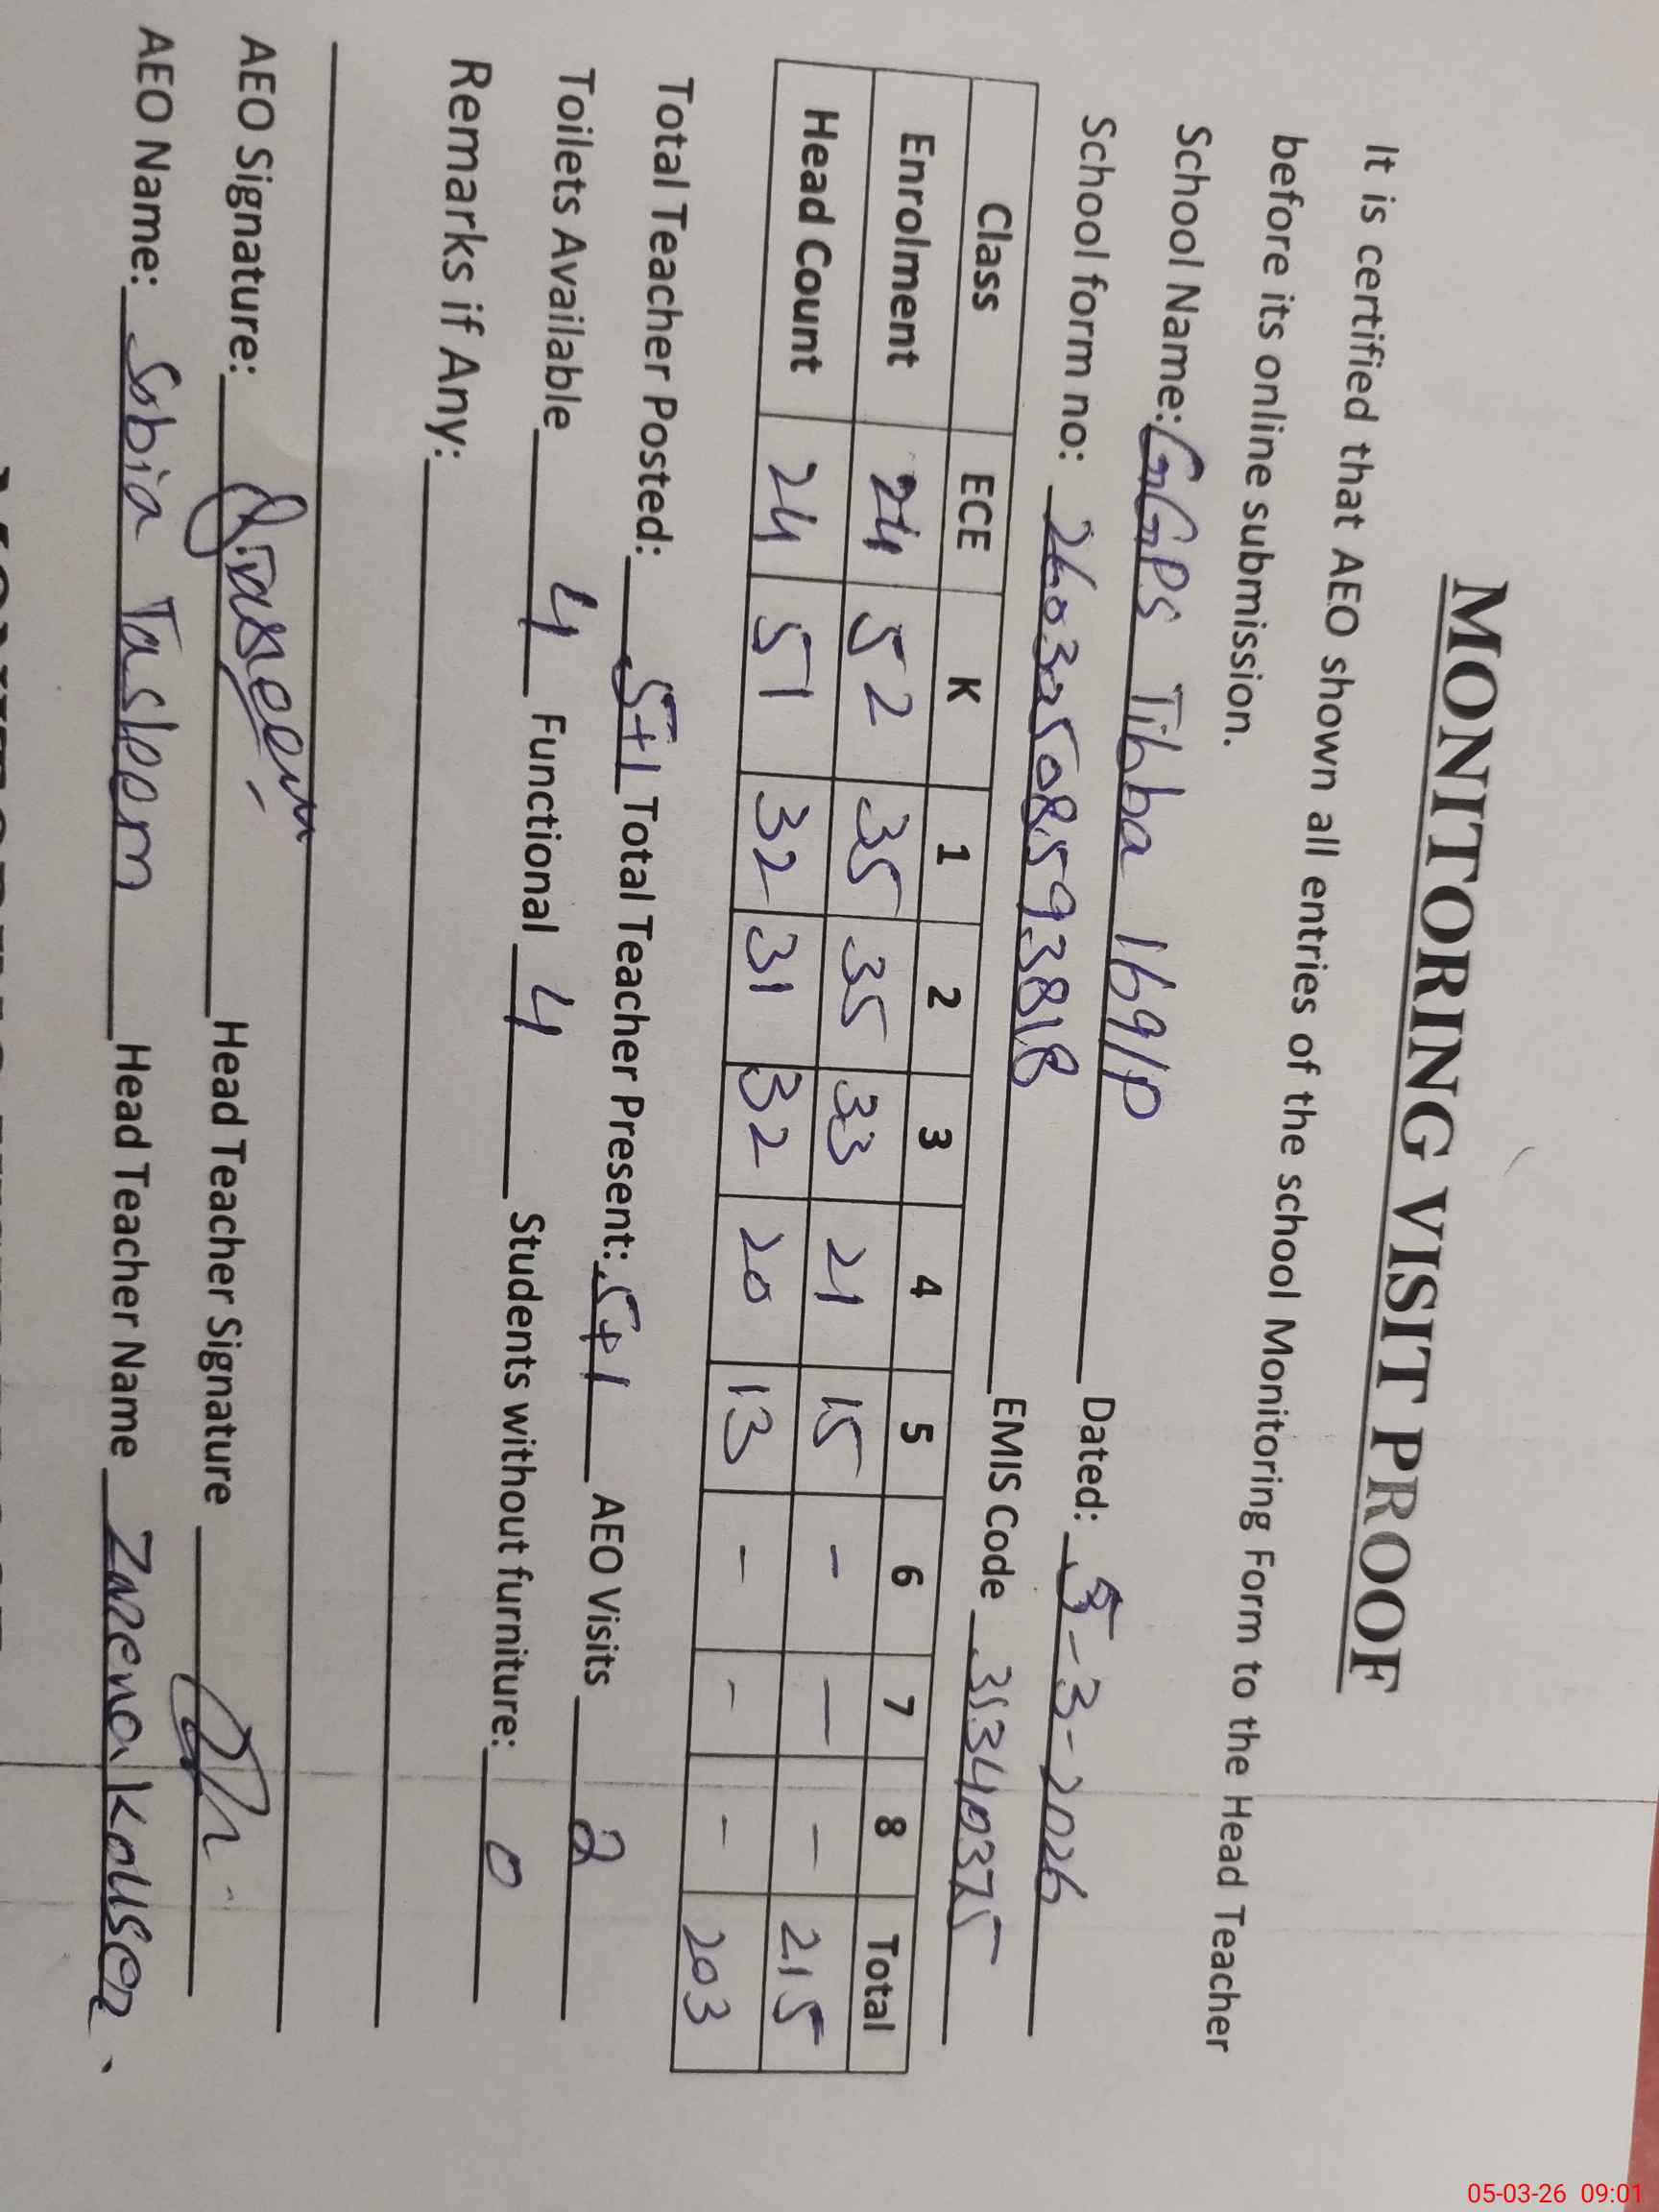 MONITORING VISIT PROOF
It is certified that AEO shown all entries of the school Monitoring Form to the Head Teacher
before its online submission.
School Name: GGPS Tibba 169/P Dated: 5-3-2026
School form no: 26030508593818 EMIS Code 31340375
Class ECE K 1 2 3 4 5 6 7 8 Total
Enrolment 24 52 35 35 33 21 15 - - - 215
Head Count 24 51 32 31 32 20 13 - - - 203
Total Teacher Posted: 5+1 Total Teacher Present: 5+1 AEO Visits 2
Toilets Available 4 Functional 4 Students without furniture: 0
Remarks if Any:
AEO Signature: Head Teacher Signature
AEO Name: Sobia Tasleem Head Teacher Name Zareena Kousar
05-03-26 09:01